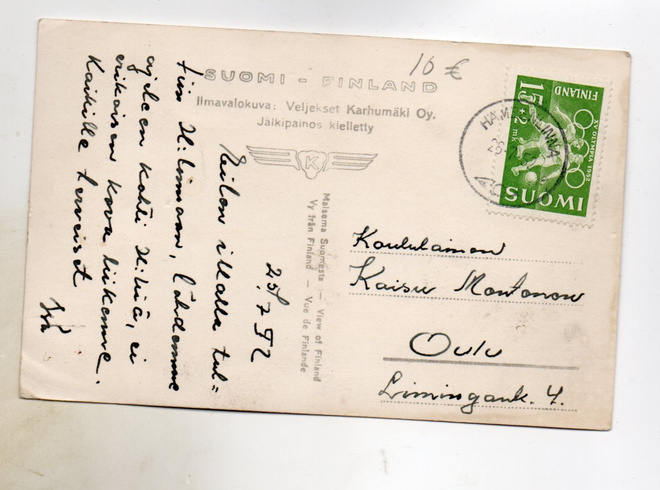 10 €
SUOMI - FINLAND
Ilmavalokuva: Veljekset Karhumäki Oy.
Jälkipainos kielletty
K
Maisema Suomesta — View of Finland
Vy från Finland — Vue de Finlande
25/7 52
Eilen illalla tul=
tiin H:linnaan, lähdemme
ajelen kohti H:kiä, ei
erikoisen kova liikenne.
Kaikille terveiset
15+2 mk
FINLAND
XV OLYMPIA 1952
SUOMI
HÄMEENLINNA
Koululainen
Kaisu Montonen
Oulu
Limingank. 4.